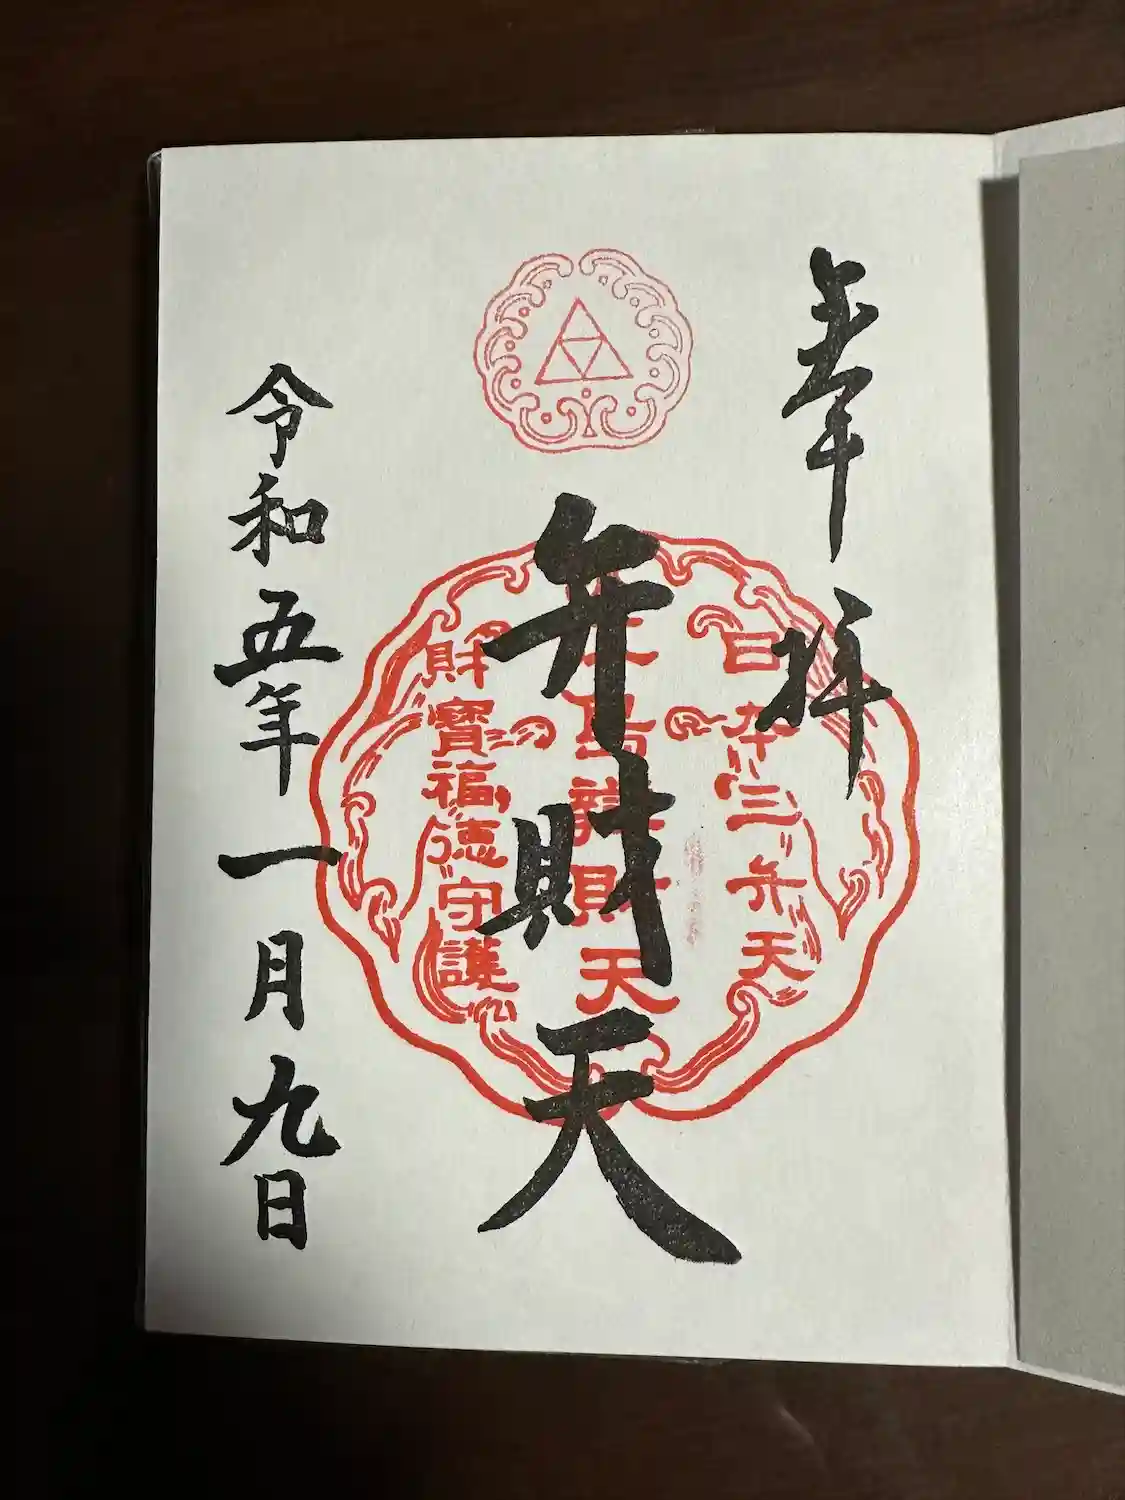 奉拝
日本三弁天
江島辯財天
弁財天
財寶福徳守護
令和五年一月九日